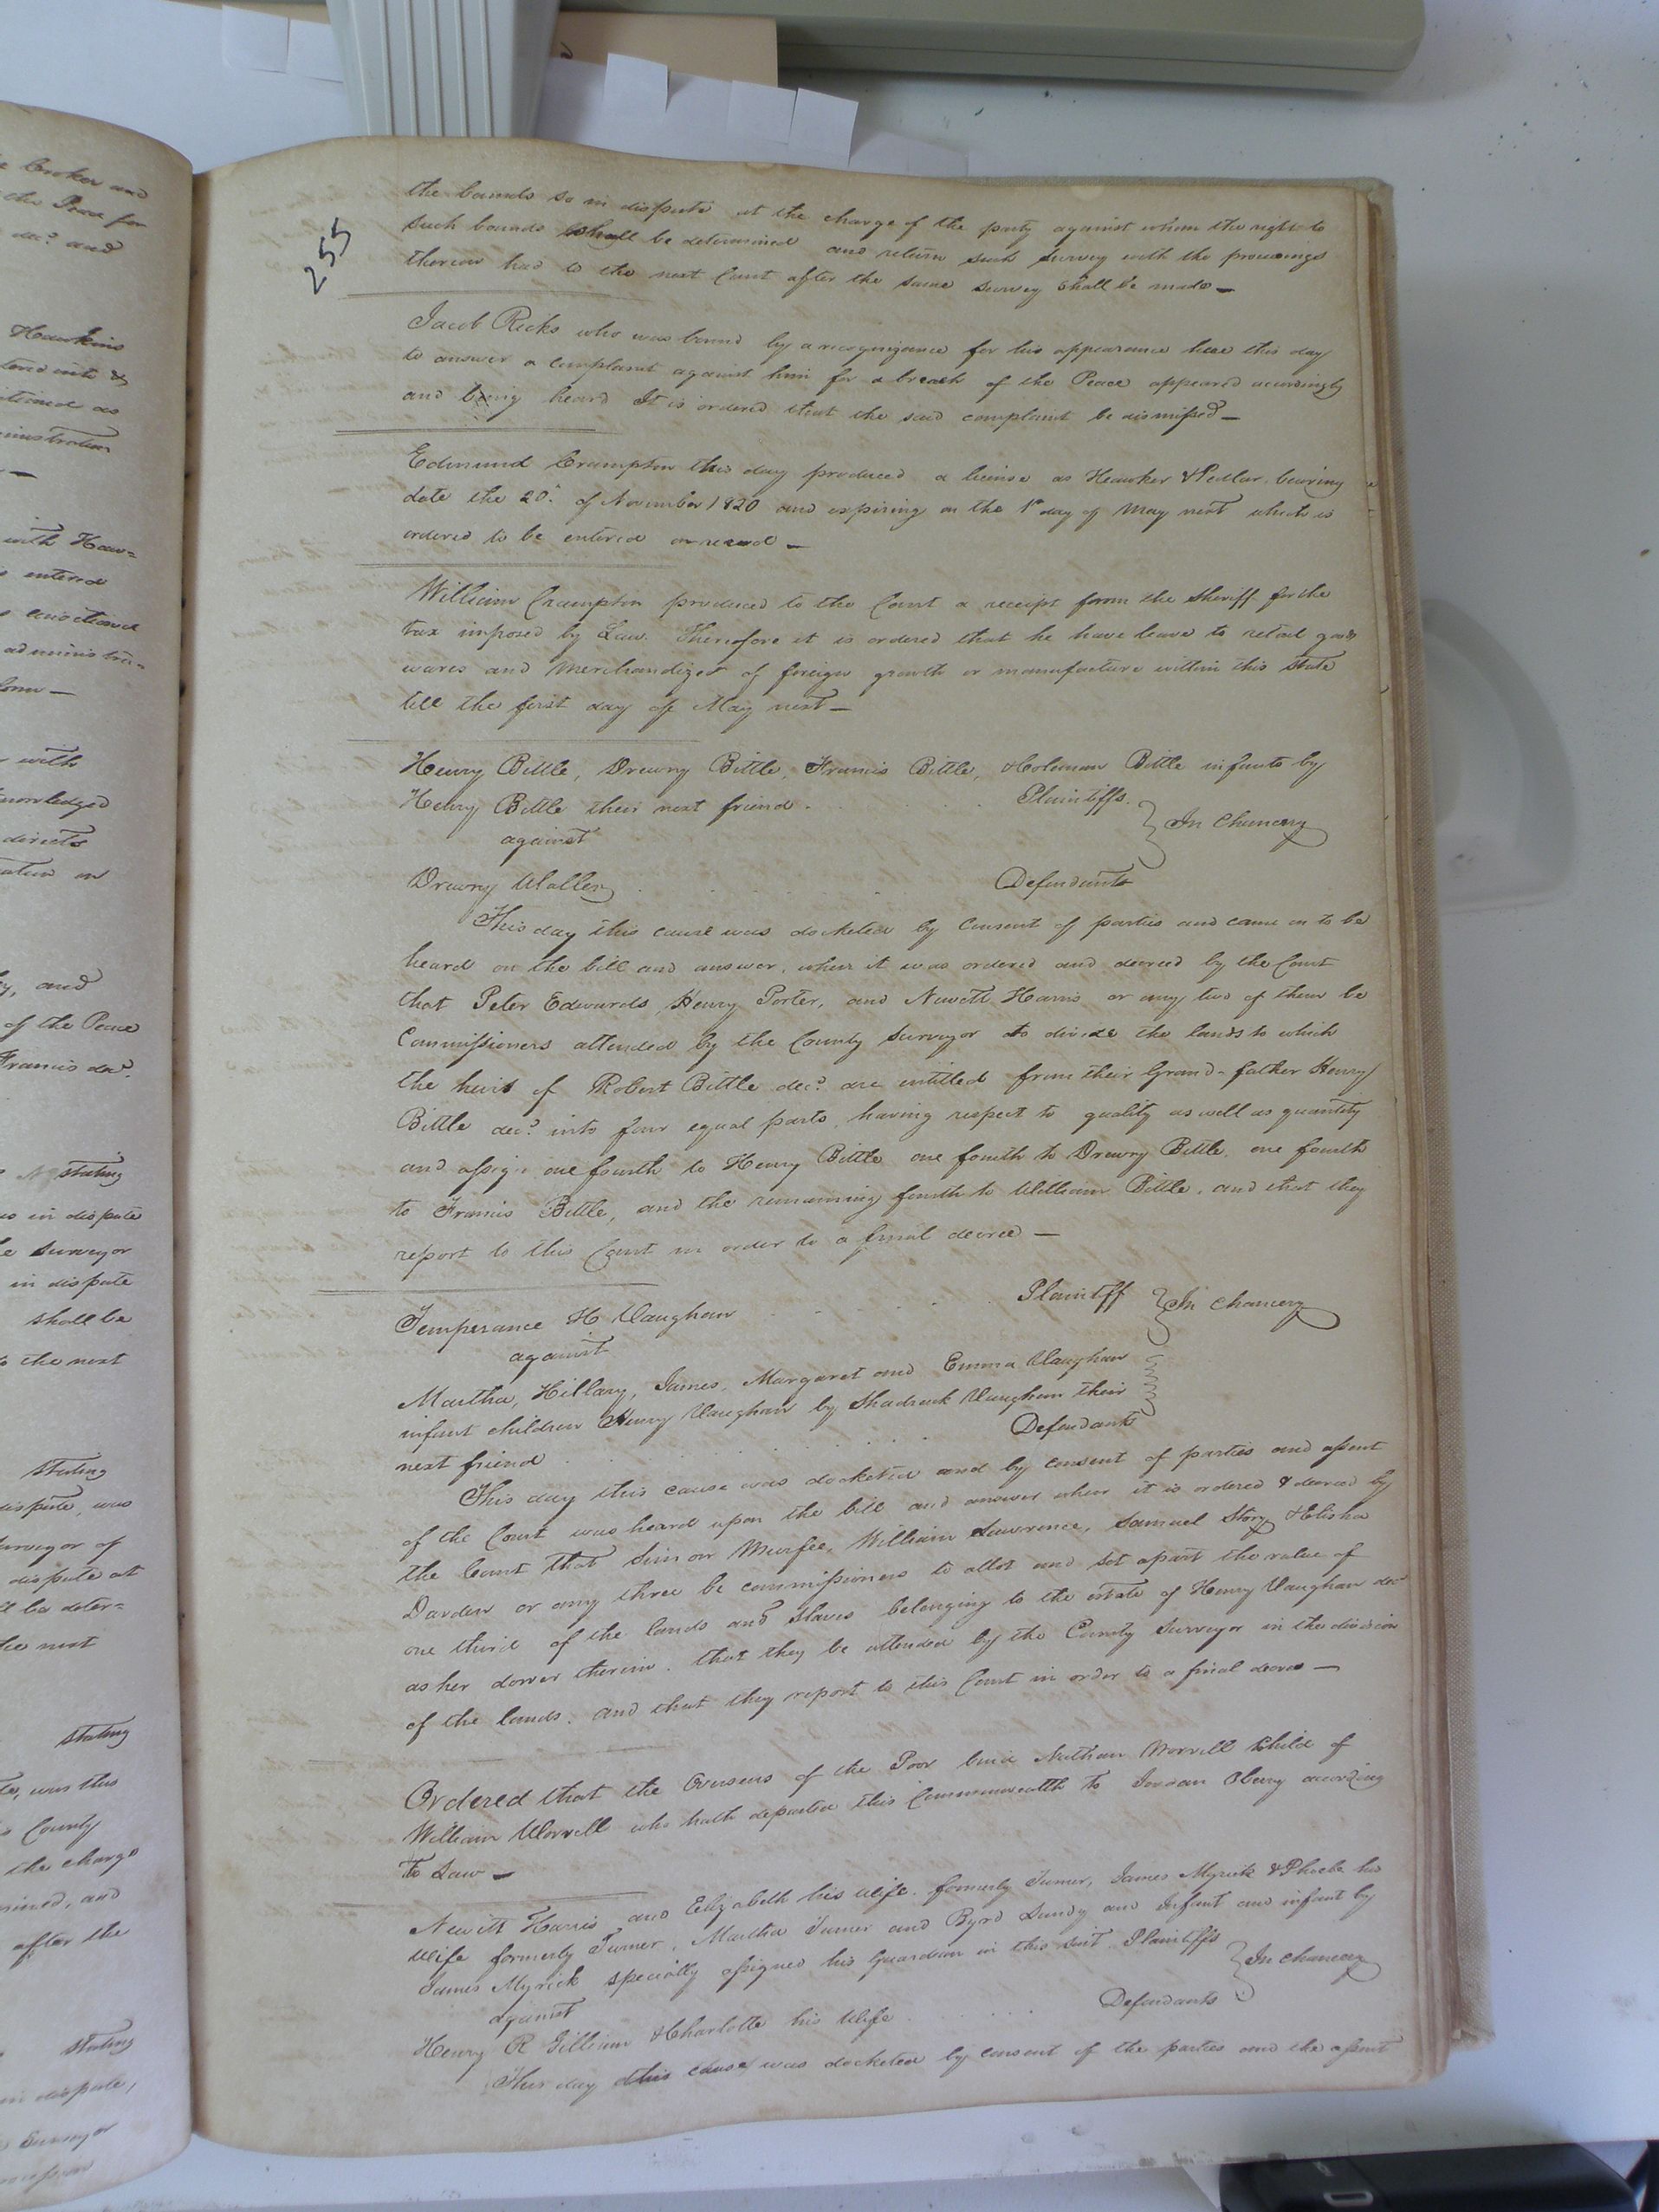 255
the bounds so in dispute at the charge of the party against whom the right to
such bounds shall be determined and return such survey with the proceedings
thereon had to the next Court after the same survey shall be made —
Jacob Ricks who was bound by a recognizance for his appearance here this day
to answer a complaint against him for a breach of the Peace appeared accordingly
and being heard It is ordered that the said complaint be dismissed —
Edmund Crumpton this day produced a license as Hawker & Pedlar, bearing
date the 20th of November 1820 and expiring on the 1st day of May next which is
ordered to be entered on record —
William Crumpton produced to the Court a receipt form the Sheriff for the
tax imposed by Law. Therefore it is ordered that he have leave to retail goods
wares and Merchandizes of foreign growth or manufacture within this State
till the first day of May next —
Henry Bittle, Drewry Bittle, Francis Bittle, & Bittle infants by
Henry Bittle their next friend . . . Plaintiffs
against } In Chancery
Drewry Waller . . . . Defendants
This day this cause was docketed by Consent of parties and came on to be
heard on the bill and answer, when it was ordered and decreed by the Court
that Peter Edwards, Henry Porter, and Newitt Harris or any two of them be
Commissioners attended by the County Surveyor do divide the lands to which
the heirs of Robert Bittle decd. are entitled from their Grand-father Henry
Bittle decd. into four equal parts, having respect to quality as well as quantity
and assign one fourth to Henry Bittle one fourth to Drewry Bittle, one fourth
to Francis Bittle, and the remaining fourth to William Bittle, and that they
report to this Court in order to a final decree —
Temperance H Vaughan . . . . . Plaintiff } In Chancery
against
Martha, Hillary, James, Margaret and Emma Vaughan
infant children Henry Vaughan by Shadrack Vaughan their
next friend . . . . . . . Defendants
This day this cause was docketed and by consent of parties and assent
of the Court was heard upon the bill and answer when it is ordered & decreed by
the Court that Simon Murfee, William Lawrence, Samuel Story & Elisha
Darden or any three be commissioners to allot and set apart the value of
one third of the lands and slaves belonging to the estate of Henry Vaughan decd
as her dower therein. that they be attended by the County Surveyor in the division
of the lands. and that they report to this Court in order to a final decree —
Ordered that the Overseers of the Poor bind Nathan Worrell child of
William Worrell who hath departed this Commonwealth to Jordan Oberry according
to Law —
Newitt Harris and Elizabeth his Wife. formerly Turner, James Myrick & Phoebe his
Wife formerly Turner, Martha Turner and Byrd Lundy and Infant and infant by
James Myrick specially assigned his Guardian in this suit Plaintiffs } In Chancery
against
Henry R Gilliam & Charlotte his Wife . . . . Defendants
This day this cause was docketed by consent of the parties and the assent